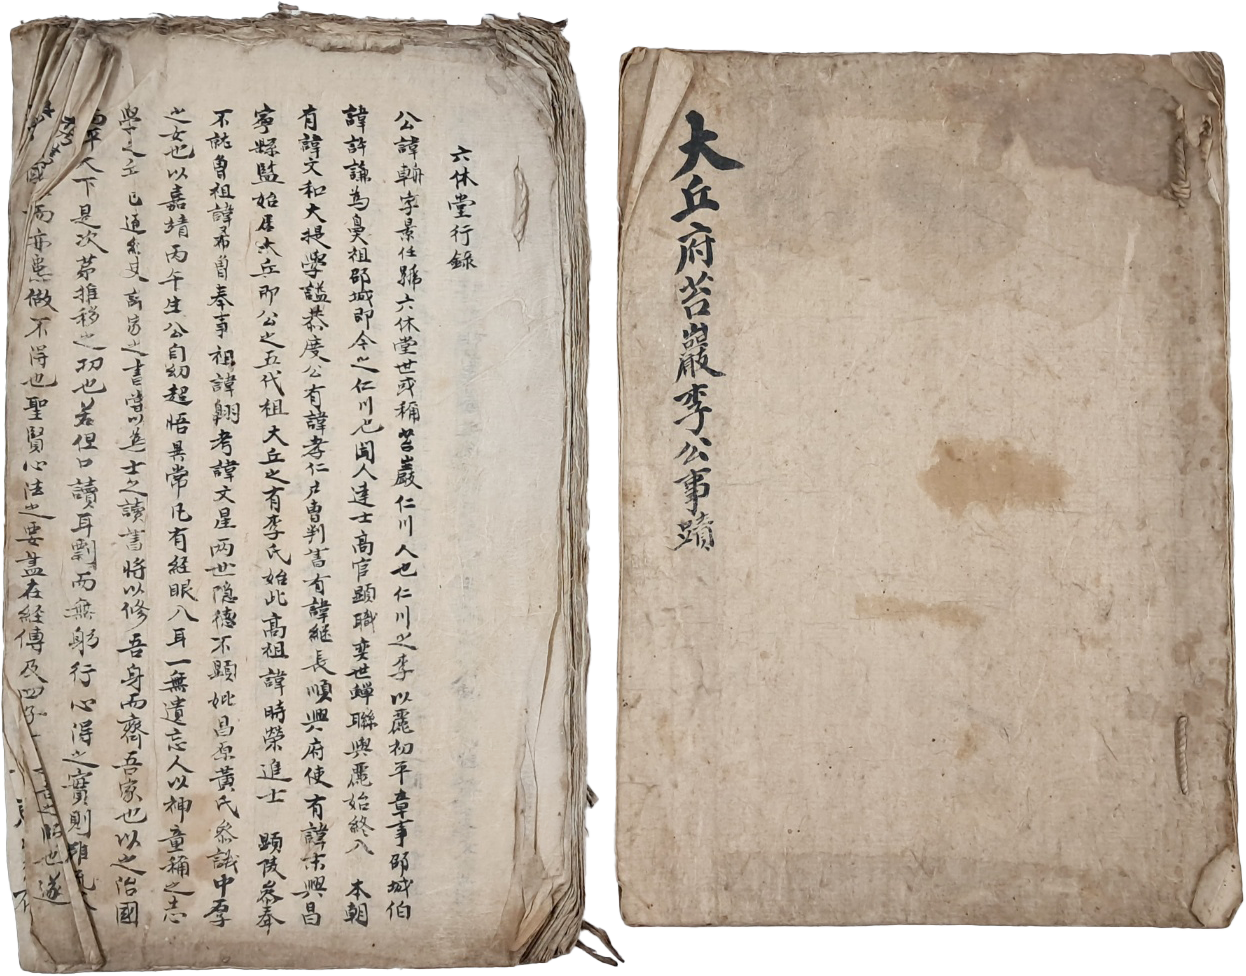 大丘府苔巖李公事蹟
六休堂行錄
公諱輈字景任號六休堂世或稱苔巖仁川人也仁川之李以麗初平章事邵城伯
諱許謙爲鼻祖邵城即今之仁川也聞人達士高官顯職奕世蟬聯與麗始終入 本朝
有諱文和大提學謚恭度公有諱孝仁戶曹判書有諱繼長順興府使有諱末興昌
寧縣監始居大丘即公之五代祖大丘之有李氏始此高祖諱時榮進士 顯陵參奉
不就曾祖諱希曾奉事祖諱翱考諱文星兩世隱德不顯妣昌原黃氏參議中孚
之女也以嘉靖丙午生公自幼超悟異常凡有經眼入耳一無遺忘人以神童稱之志
學之年已通經史諸家之書嘗以爲士之讀書將以修吾身而齊吾家也以之治國
平天下是次茅推移之功也若但口讀耳剽而無躬行心得之實則雖
國而亦患做不得也聖賢心法之要盡在經傳及四子也遂